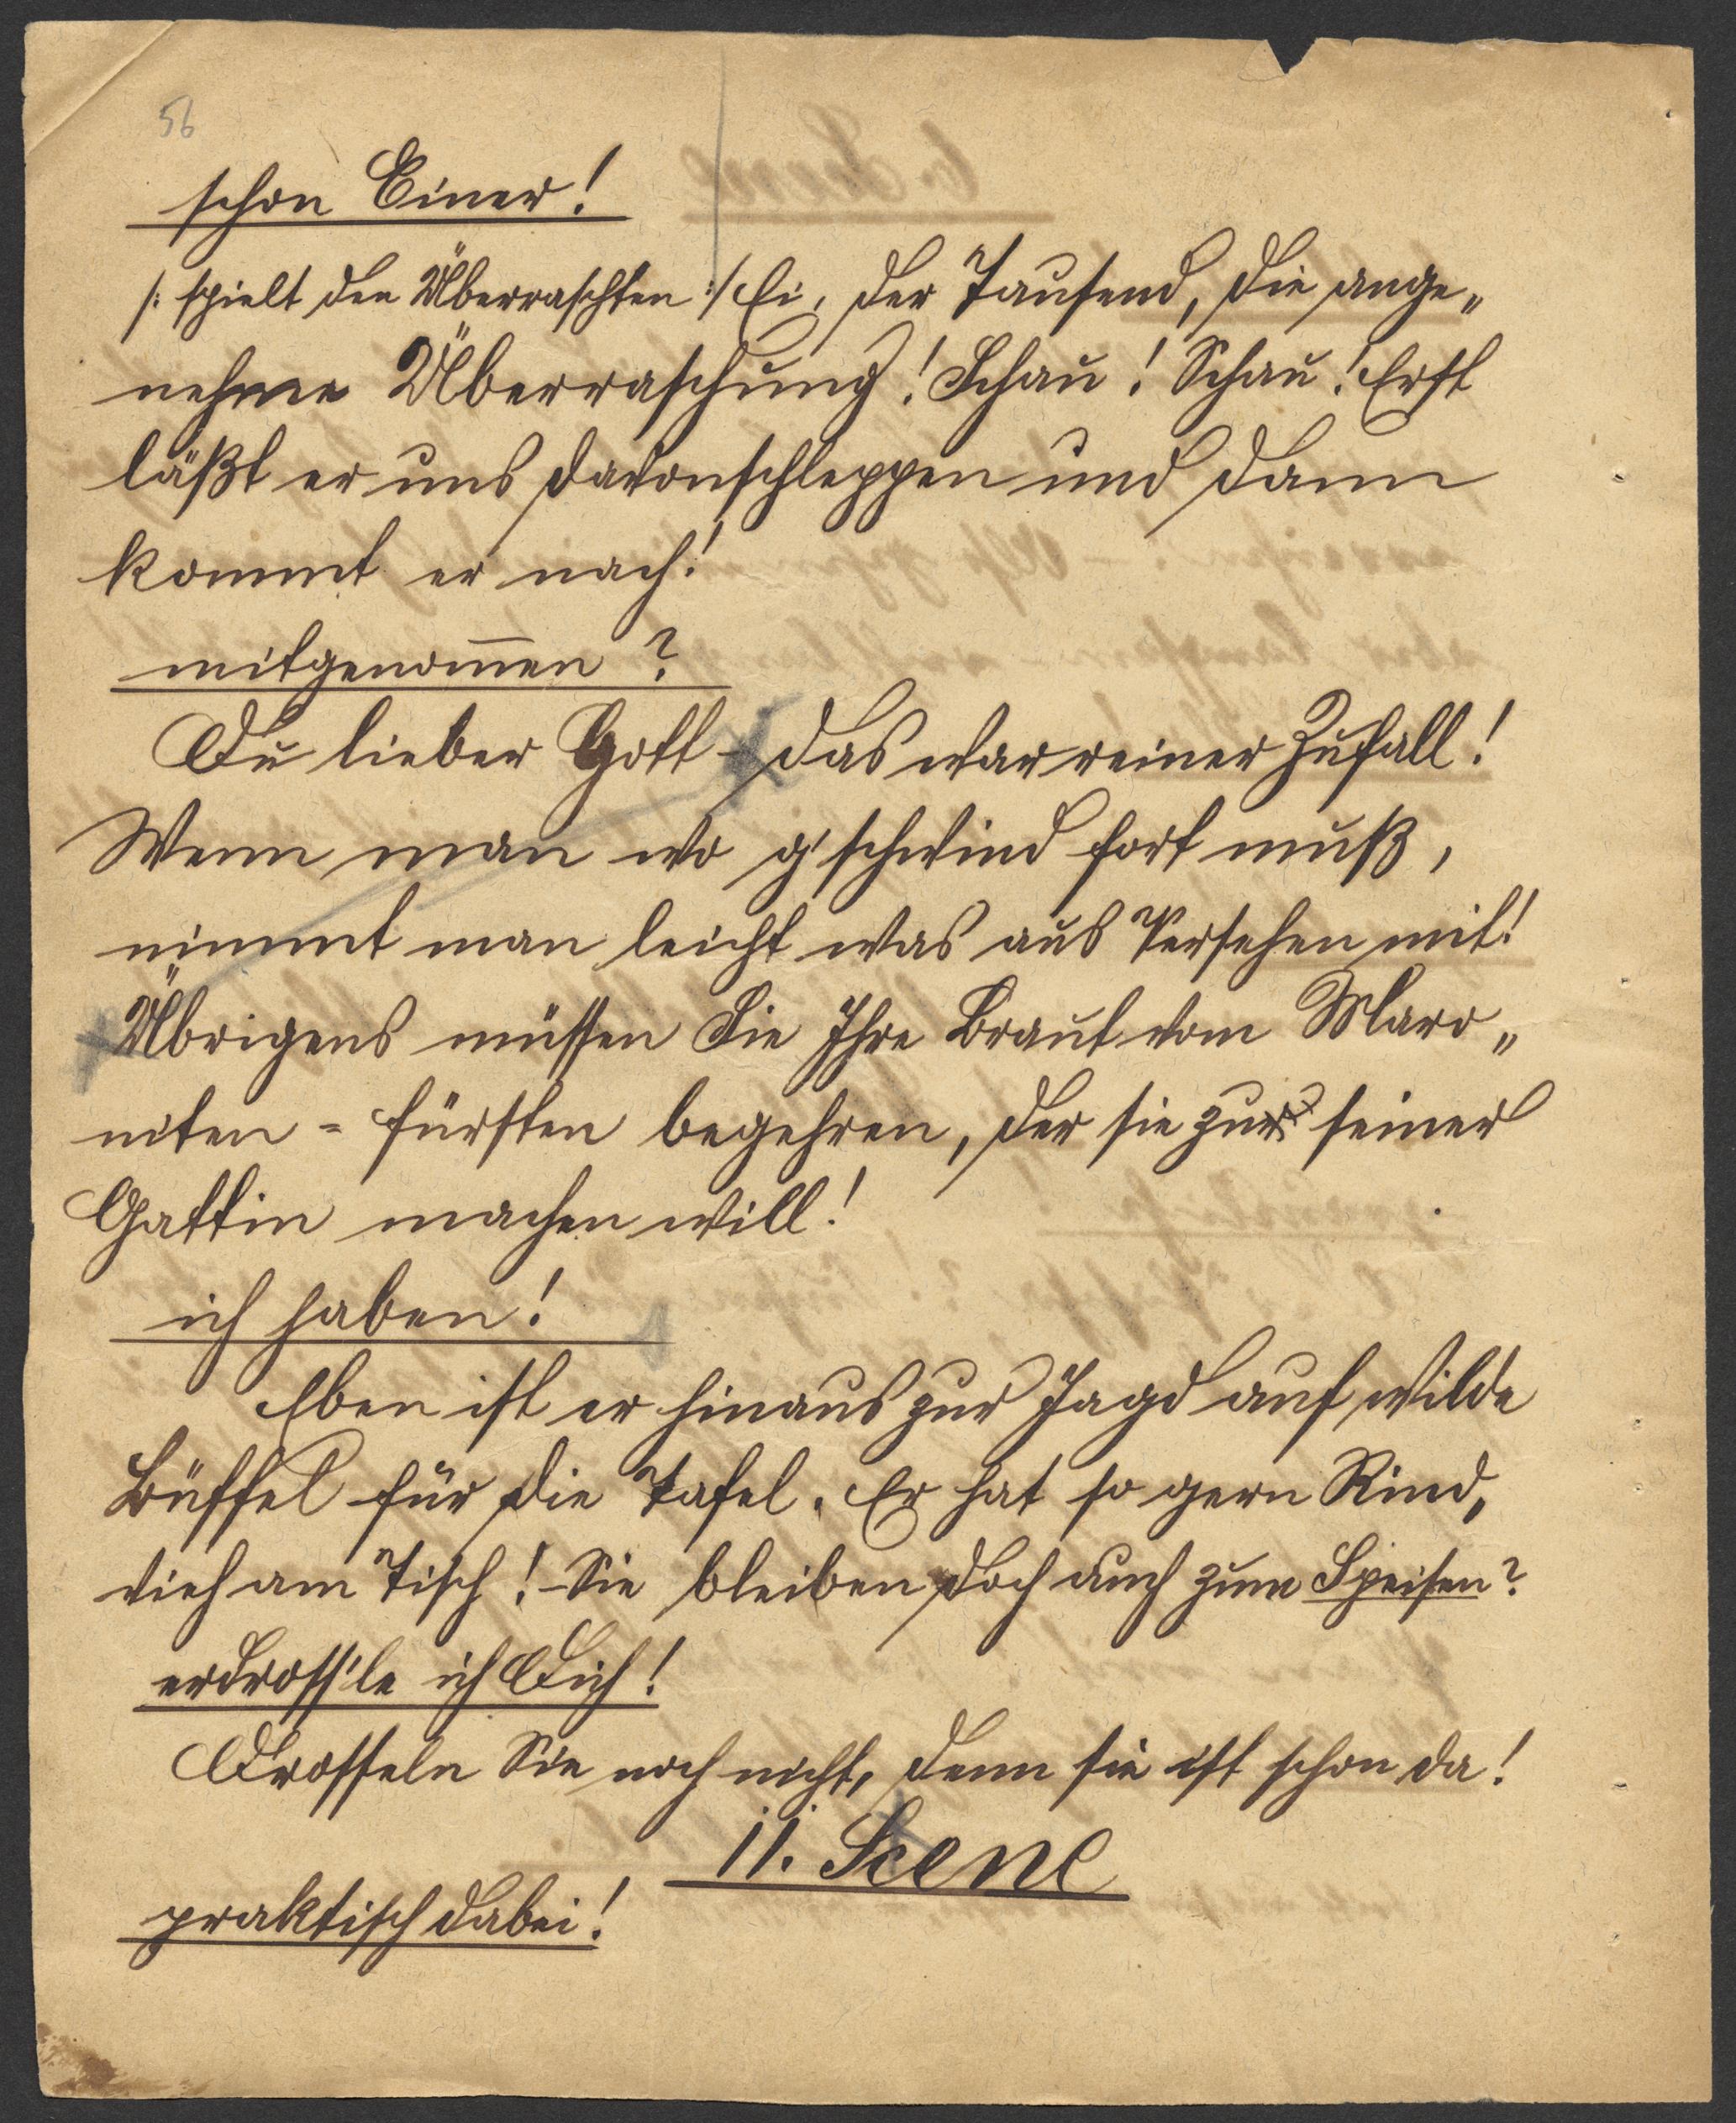 56
schon Einer!
/: spielt den Überraschten :/ Ei, der Tausend, die ange„
nehme Überraschung! Schau! Schau! Erst
läßt er uns davonschleppen und dann
kommt er nach!
mitgenom̅en?
Du lieber Gott – das war reiner Zufall!
Wenn man wo g'schwind fort muß,
nimmt man leicht was aus Versehen mit!
Übrigens müssen Sie Ihre Braut vom Maro„
niten = fürsten begehren, der sie zur seiner
Gattin machen will!
ich haben!
Eben ist er hinaus zur Jagd auf wilde
Büffel für die Tafel. Er hat so gern Rind„
vieh am Tisch! – Sie bleiben doch auch zum Speisen?
erdross'le ich Dich!
Drosseln Sie noch nicht, denn sie ist schon da!
11. Scene
praktisch dabei!